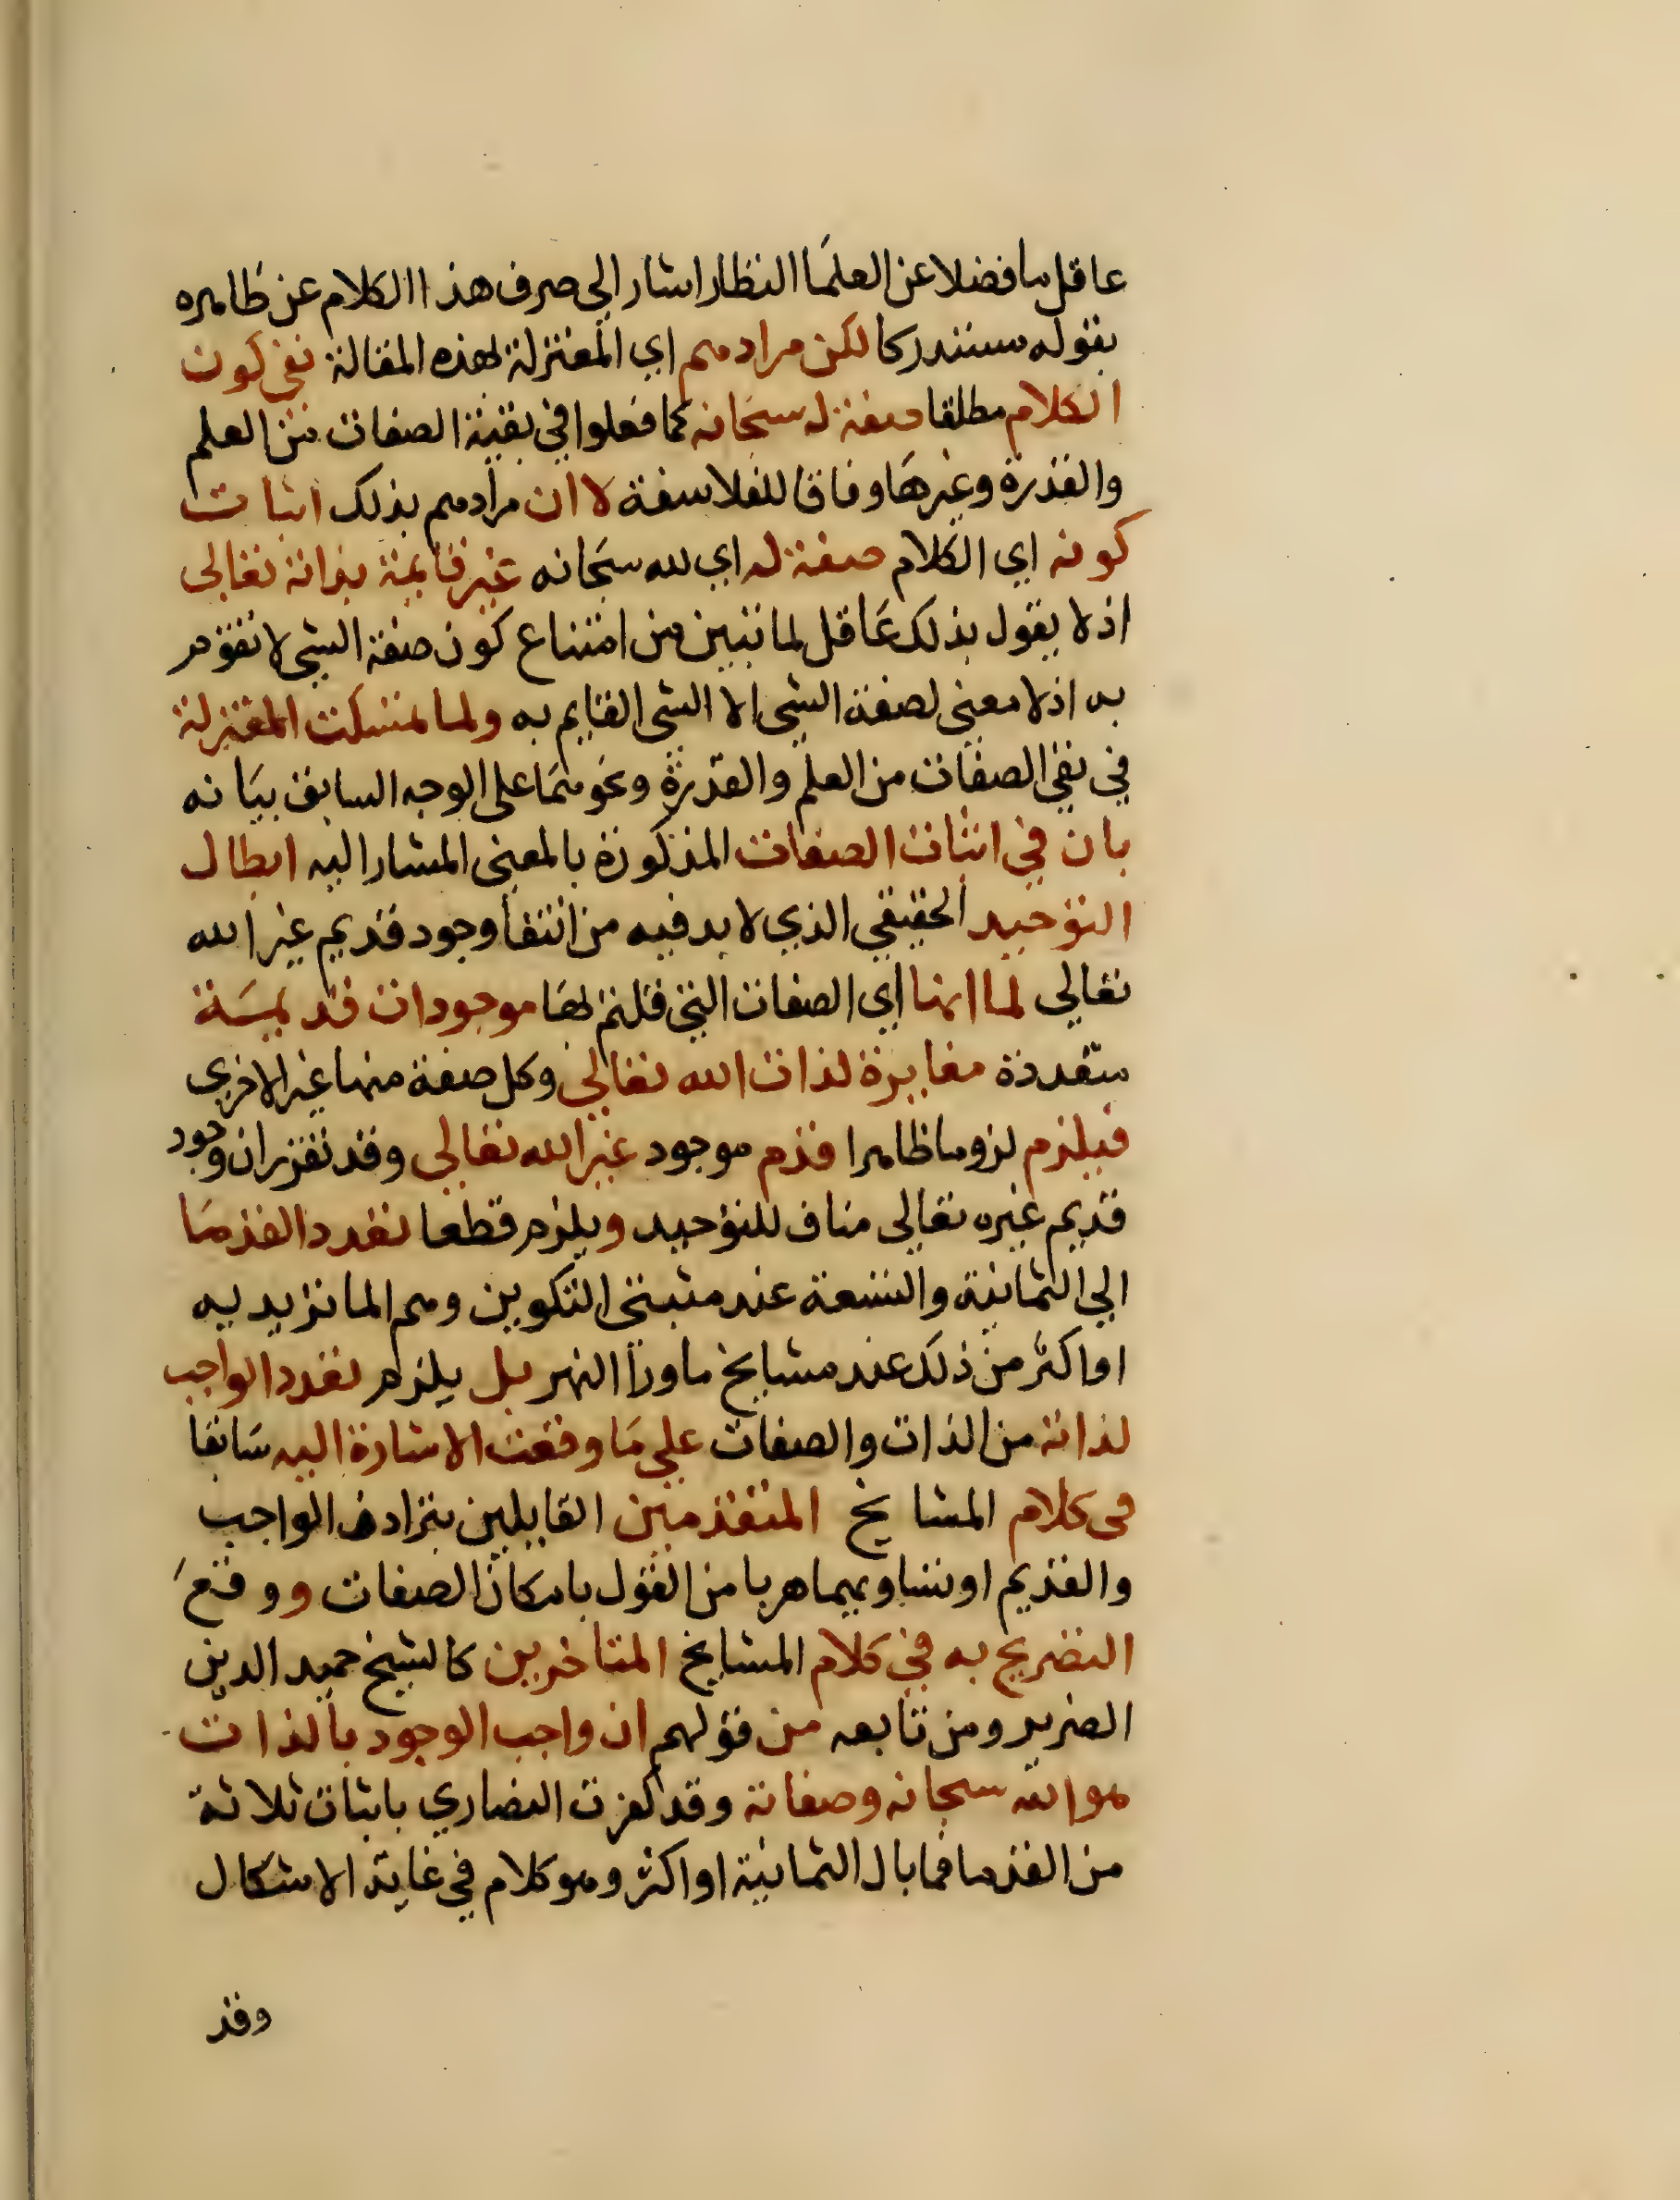 عاقل ما فضلا عن العلما النظار اشار الي صرف هذا الكلام عن ظاهره
بقوله مستدركا لكن مرادهم اي المعتزلة بهذه المقالة نفي كون
الكلام مطلقا صفة له سبحانه كما فعلوا في بقية الصفات من العلم
والقدرة وغيرها وفاقا للفلاسفة لا ان مرادهم بذلك اثبات
كونه اي الكلام صفة له اي لله سبحانه غير قايمة بذاته تعالى
اذ لا يقول بذلك عاقل لما تبين من امتناع كون صفة الشي لا تقوم
به اذ لا معني لصفة الشي الا الشي القايم به ولما تمسكت المعتزلة
في نفي الصفات من العلم والقدرة ونحوهما على الوجه السابق بيانه
بان في اثبات الصفات المذكورة بالمعني المشار اليه ابطال
التوحيد الحقيقي الذي لا بد فيه من انتفا وجود قديم غير الله
تعالي لما انها اي الصفات التي قلتم بها موجودات قديمة
متعددة مغايرة لذات الله تعالي وكل صفة منها غير الاخرى
فيلزم لزوما ظاهرا قدم موجود غير الله تعالي وقد تقرر ان وجود
قديم غيره تعالى مناف للتوحيد ويلزم قطعا تعدد القدما
الي الثمانية والتسعة عند مثبتي التكوين وهم الماتريديه
او اكثر من ذلك عند مشايخ ماورا النهر بل يلزم تعدد الواجب
لذاته من الذات والصفات علي ما وقعت الاشارة اليه سابقا
في كلام المشايخ المتقدمين القايلين بترادف الواجب
والقديم او تساويهما هربا من القول بامكان الصفات ووقع
التصريح به في كلام المشايخ المتاخرين كالشيخ حميد الدين
الضرير ومن تابعه من قولهم ان واجب الوجود بالذات
هو الله سبحانه وصفاته وقد كفرت النصاري باثبات ثلاثة
من القدما فما بال الثمانية او اكثر وهو كلام في غاية الاشكال
وقد